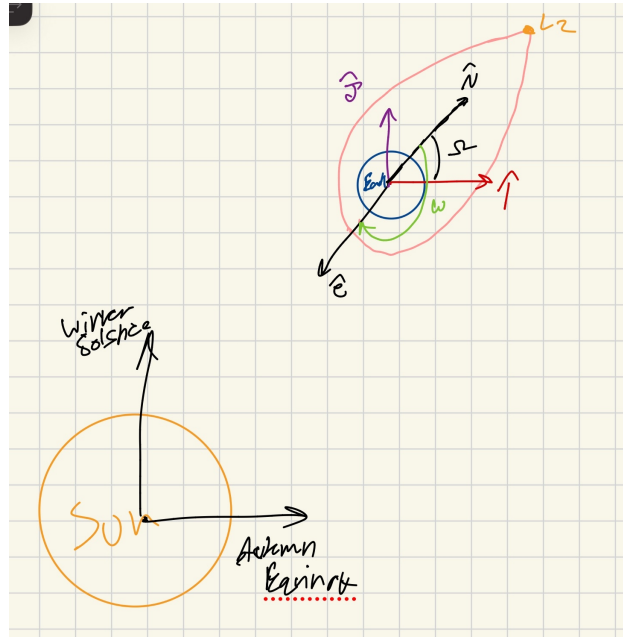 L2
N̂
Ĵ
Ω
Earth
Î
ω
ê
Winter
Solstice
SUN
Autumn
Equinox